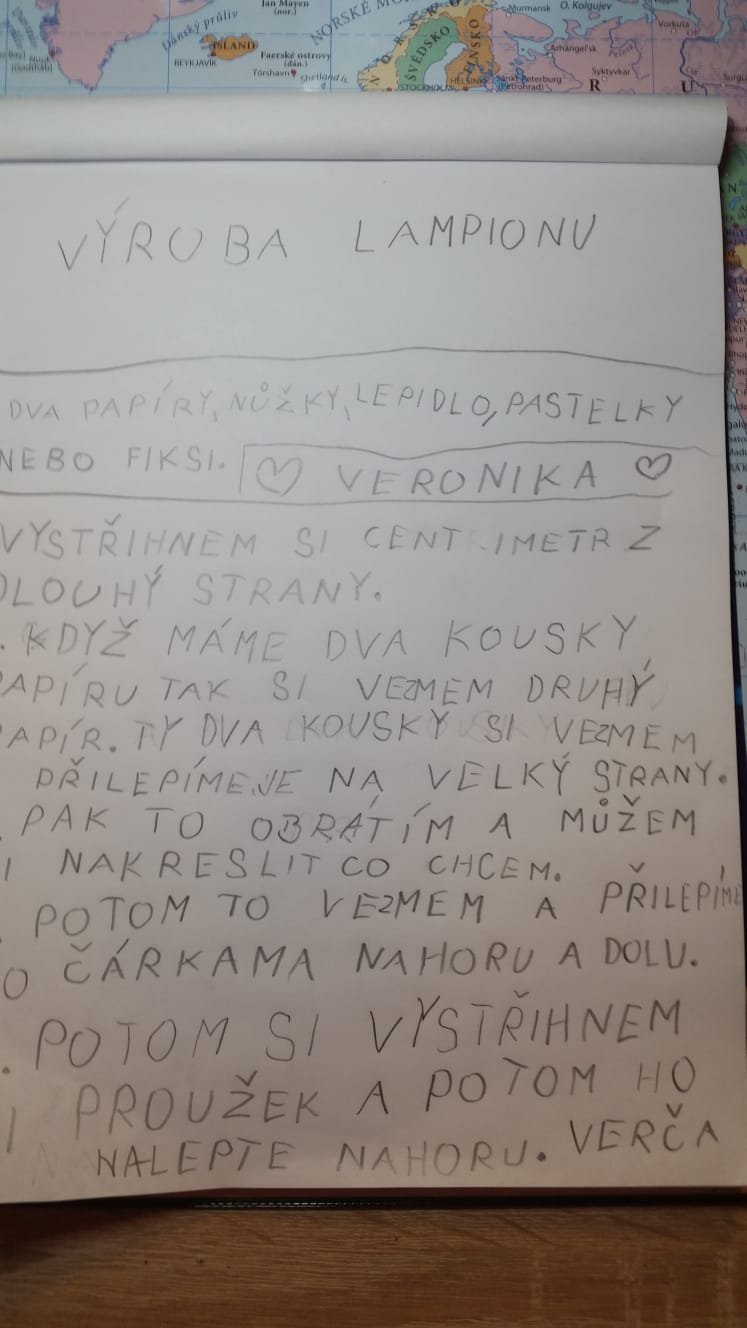 Jan Mayen
(nor.)
O. Kolgujev
Murmansk
Vorkuta
Dánský průliv
ÍSLAND
REYKJAVÍK
Faerské ostrovy
(dán.)
Tórshavn
Shetland
NORSKÉ MO
NOR
ŠVÉDSKO
FINSKO
STOCKHOLM
HELSINKI
Sankt Peterburg
(Petrohrad)
Archangeľsk
Syktyvkar
R U
VÝROBA LAMPIONU
DVA PAPÍRY, NŮŽKY, LEPIDLO, PASTELKY
NEBO FIKSI.
♡ VERONIKA ♡
VYSTŘIHNEM SI CENTIMETR Z
DLOUHÝ STRANY.
. KDYŽ MÁME DVA KOUSKY
APÍRU TAK SI VEZMEM DRUHÝ
APÍR. TY DVA KOUSKY SI VEZMEM
PŘILEPÍME JE NA VELKÝ STRANY.
. PAK TO OBRÁTÍM A MŮŽEM
I NAKRESLIT CO CHCEM.
. POTOM TO VEZMEM A PŘILEPÍME
O ČÁRKAMA NAHORU A DOLU.
. POTOM SI VYSTŘIHNEM
I PROUŽEK A POTOM HO
NALEPTE NAHORU. VERČA